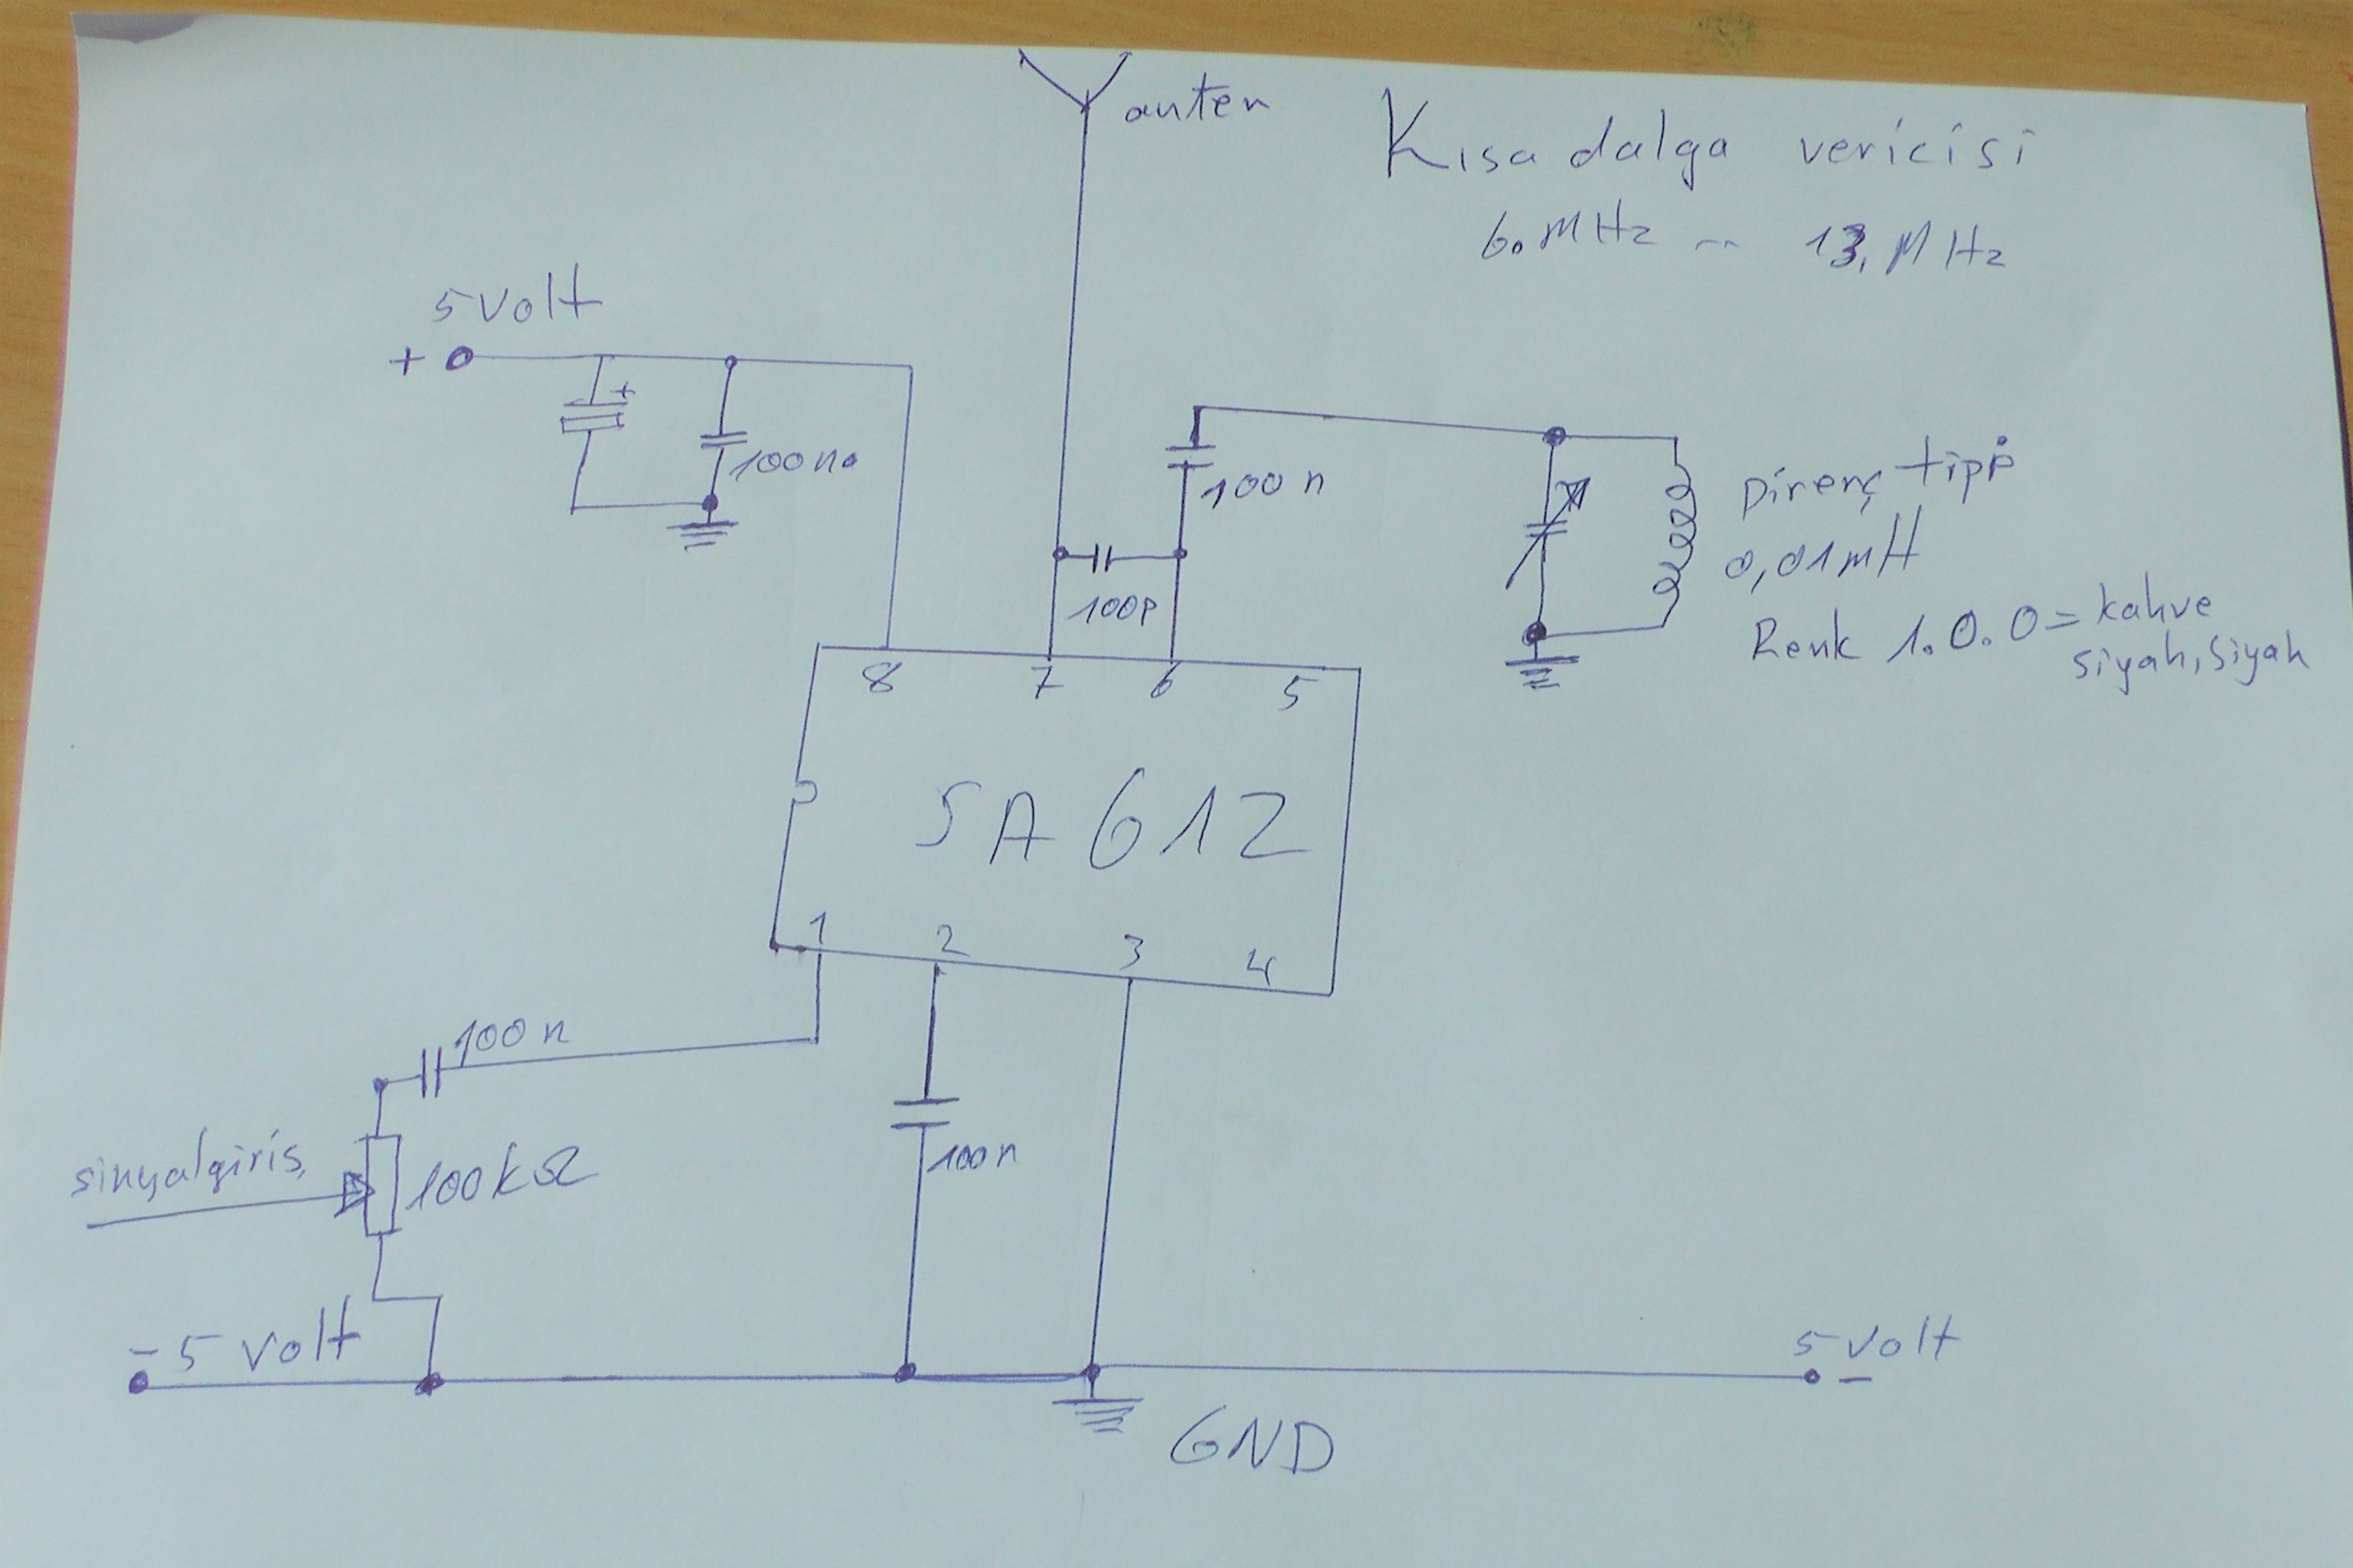 anten
Kısa dalga vericisi
6.MHz -- 13.MHz
5 volt
+
+
100n.
100n
100p
Direnç tipi
0,01mH
Renk 1.0.0= kahve
siyah, siyah
8 7 6 5
SA612
1 2 3 4
100n
100n
sinyalgiris
100kΩ
- 5 volt
5 volt
-
GND